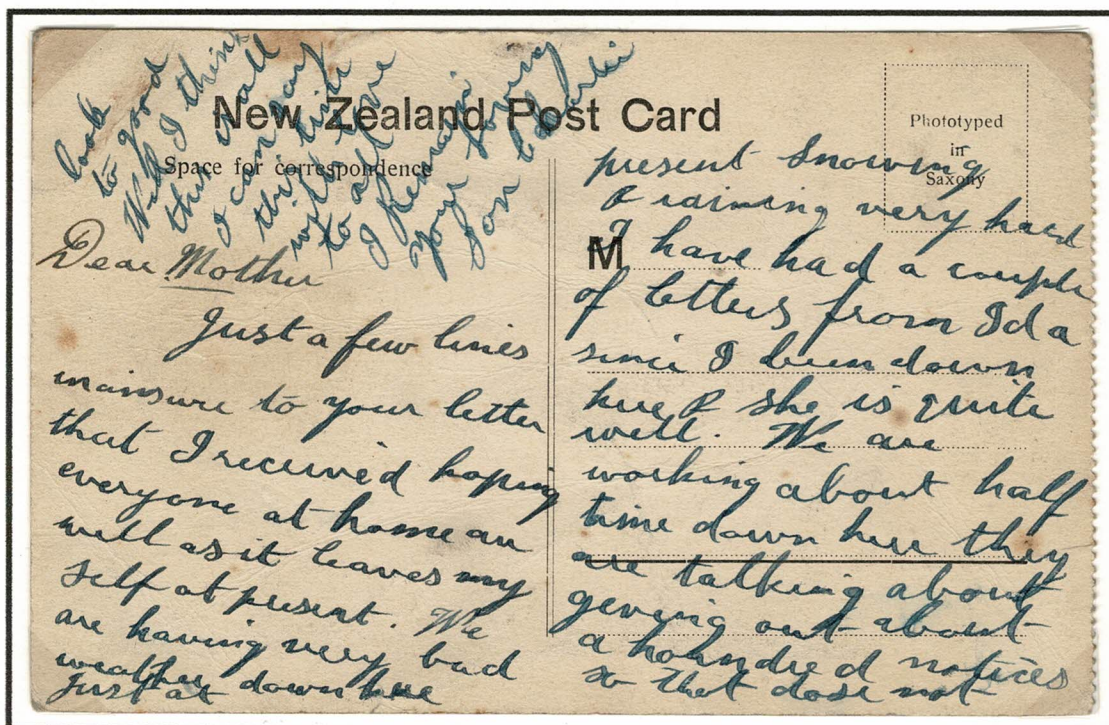 New Zealand Post Card
Space for correspondence
Phototyped
in
Saxony
M
Dear Mother
Just a few lines
in ansure to your letter
that I received hoping
everyone at home are
well as it leaves my
self at present. We
are having very bad
weather down here
Just at
present snowing
& raining very hard
I have had a couple
of letters from Ida
since I been down
here & she is quite
well. We are
working about half
time down here they
are talking about
geving out about
a houndred notices
so that dose not
look
to good
Well I think
this is all
I can say
this time
with love
to all
I Remain
your loving
Son